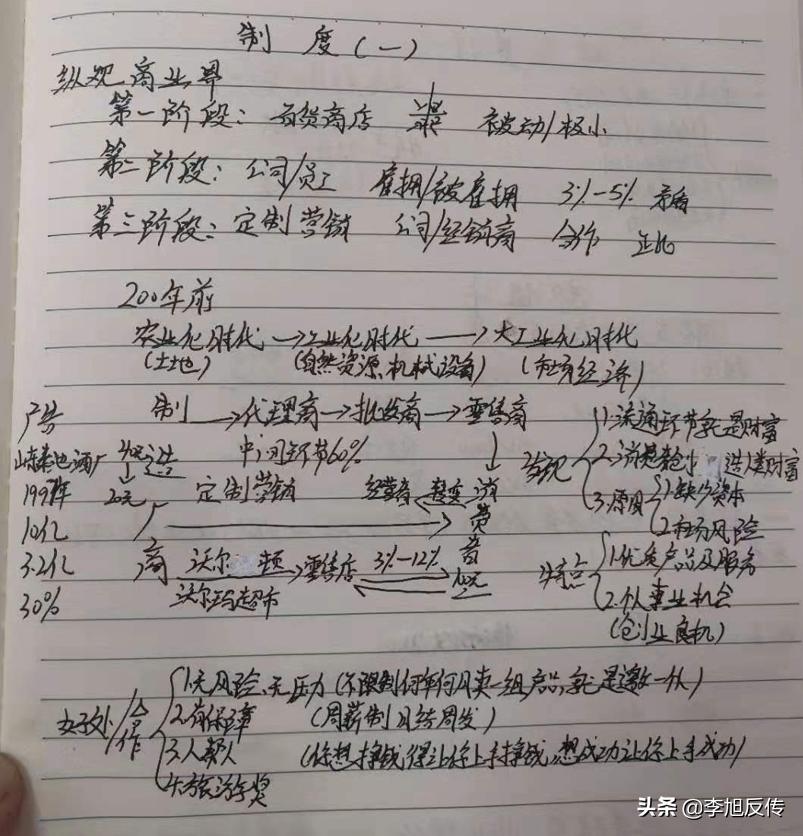 制 度(一)
纵观商业界
第一阶段: 百货商店 被动/极小
第二阶段: 公司/员工 雇拥/被雇拥 3%-5% 矛盾
第三阶段: 定制营销 公司/经销商 合作 正比
200年前
农业化时代→工业化时代→大工业化时代
(土地) (自然资源、机械设备) (市场经济)
广告 制→代理商→批发商→零售商 发现 1.流通环节就是财富
山东秦池酒厂 中间环节60% 2.消费
1997年 20元 定制营销 经营者 转变 消 3.原因 1.缺少资本
10亿 费 2.市场风险
3.2亿 商 沃尔 顿 零售店 3%-12% 者 特点 1.优质产品及服务
30% 沃尔玛超市 2.个人事业机会
(创业良机)
好处/合作 1.无风险、无压力 (不限制何年何月卖一组产品,就是邀一人)
2.有保障 (周薪制 日结周发)
3.人帮人 (你想挣钱得让你上手挣钱,想成功让你上手成功)
4.旅游奖
头条 @李旭反传